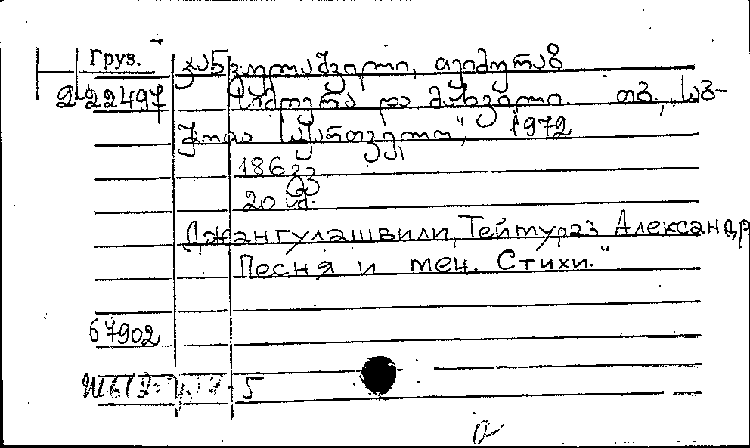 Груз. ჯანგულაშვილი, თეიმურაზ
2-22497 სიმღერა და მახვილი. თბ., „საბ-
ჭოთა საქართველო", 1972
186 გვ.
20 კ.
Джангулашвили, Теймураз Александр
Песня и меч. Стихи."
67902
5